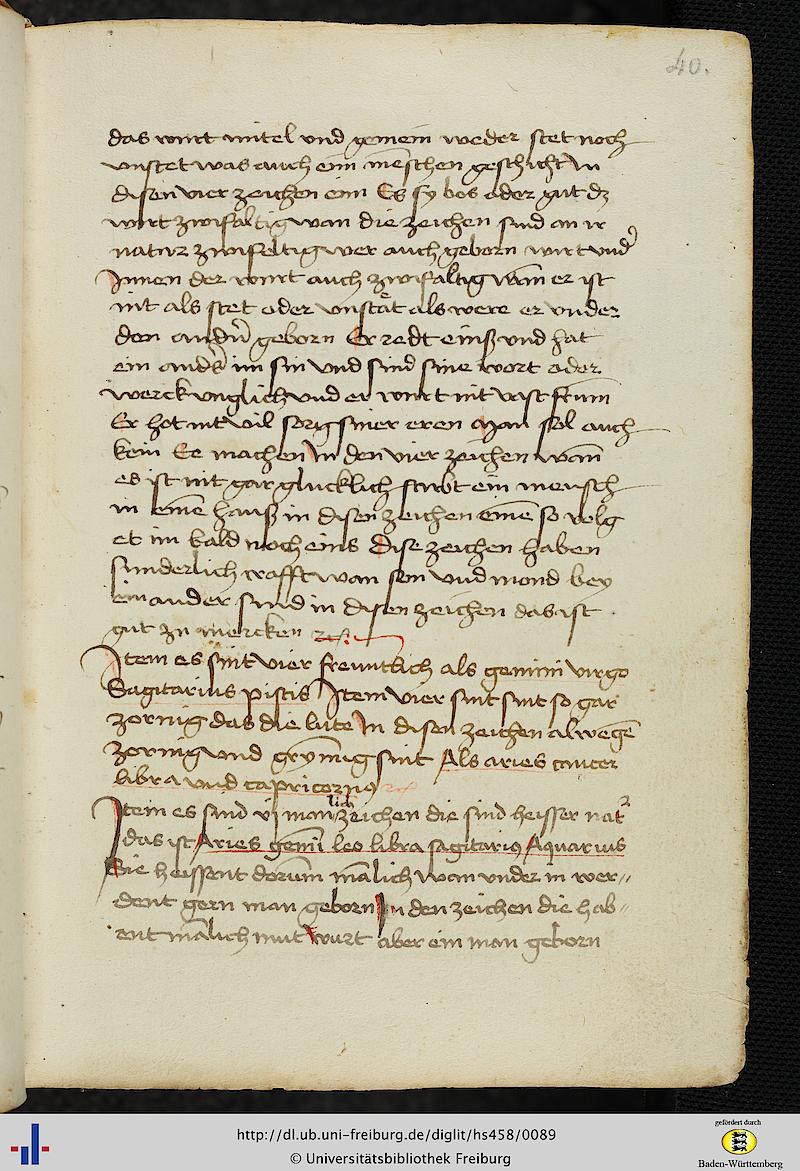 40.
das wirt mitel vnd gemein weder stet noch
vnstet was auch eim mēschen geschicht in
disen vier zeichen eim Es sy bos oder gut dz
wirt zwifaltig wan die zeichen sind an ir
natur zwifeltig wer auch geborn wirt vnd̕
Innen der wirt auch zwifaltig wan̄ er ist
nit als stet oder vnstät als were er vnder
den andn̄ geborn Er redt einß vnd hat
ein and̕s im sin vnd sind sine wort oder
werck vnglich vnd er wirt nit vast frum̄
Er hot nit vil sorg siner eren Man sol auch
kein Ee machen In den vier zeichen wan̄
es ist nit gar glucklich stirbt ein mensch
in eim̄e hauß in disen zeichen eim̄e so volg
et im bald noch eins Dise zeichen haben
sunderlich crafft wan son vnd mond bey
ein ander sind in disen zeichen das ist
gut zu mercken
Item es sint vier freuntlich als gemini virgo
Sagitarius piscis Item vier sint sint so gar
zornig das die lute In disen zeichen alwegē
zornig vnd grym̄ig sint Als aries cancer
libra vnd capricornꝰ
Item es sind vj man lich zeichen die sind heisser nat̕
das ist Aries gemī leo libra sagitariꝰ Aquarius
Sie heissent dorum̄ mālich wan vnder in wer//
dent gern man geborn In den zeichen die hab//
ent mālich mut Wurt aber ein man geborn
http://dl.ub.uni-freiburg.de/diglit/hs458/0089
© Universitätsbibliothek Freiburg
gefördert durch
Baden-Württemberg